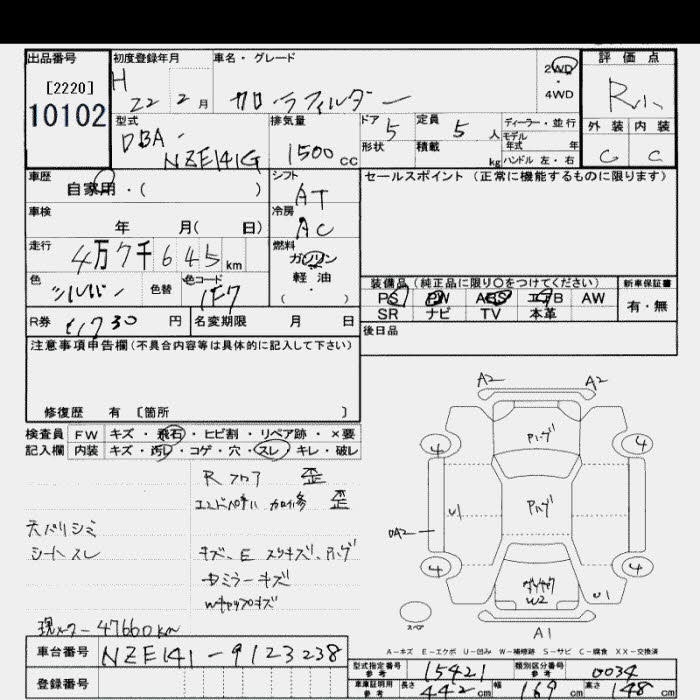 出品番号
[2220]
10102
初度登録年月
H 22 2 月
車名・グレード
カローラフィルダー
2WD
・
4WD
評価点
外装 内装
C C
型式
DBA-
NZE141G
排気量
1500 cc
ドア 5
形状
定員 5 人
積載 kg
ディーラー・並行
モデル
年式 年
ハンドル 左・右
車歴
自家用・( )
シフト
AT
セールスポイント (正常に機能するものに限ります)
車検
年 月( 日)
冷房
AC
走行
4万7千645 km
燃料
ガソリン
軽・油
・
( )
色
シルバー
色替
色コード
1F7
装備品 (純正品に限り○をつけてください)
新車保証書
PS PW ABS エアB AW
SR ナビ TV 本革
有・無
R券
円
名変期限 月 日
後日品
注意事項申告欄(不具合内容等は具体的に記入して下さい)
修復歴 有 〔箇所 〕
検査員 FW キズ・飛石・ヒビ割・リペア跡・×要
記入欄 内装 キズ・汚レ・コゲ・穴・スレ・キレ・破レ
Rフロア 歪
歪
天バリシミ
シートスレ
ドミラーキズ
Wキャップキズ
現メーター47660km
A2 A2
4 4
U1
4 4
W2
U1
スペア
A1
A-キズ E-エクボ U-凹み W-補修跡 S-サビ C-腐食 XX-交換済
車台番号 NZE141-9123238
登録番号
型式指定番号
参考
15421
類別区分番号
参考
0034
車庫証明用
参考
長さ 442 cm 幅 169 cm 高さ 148 cm